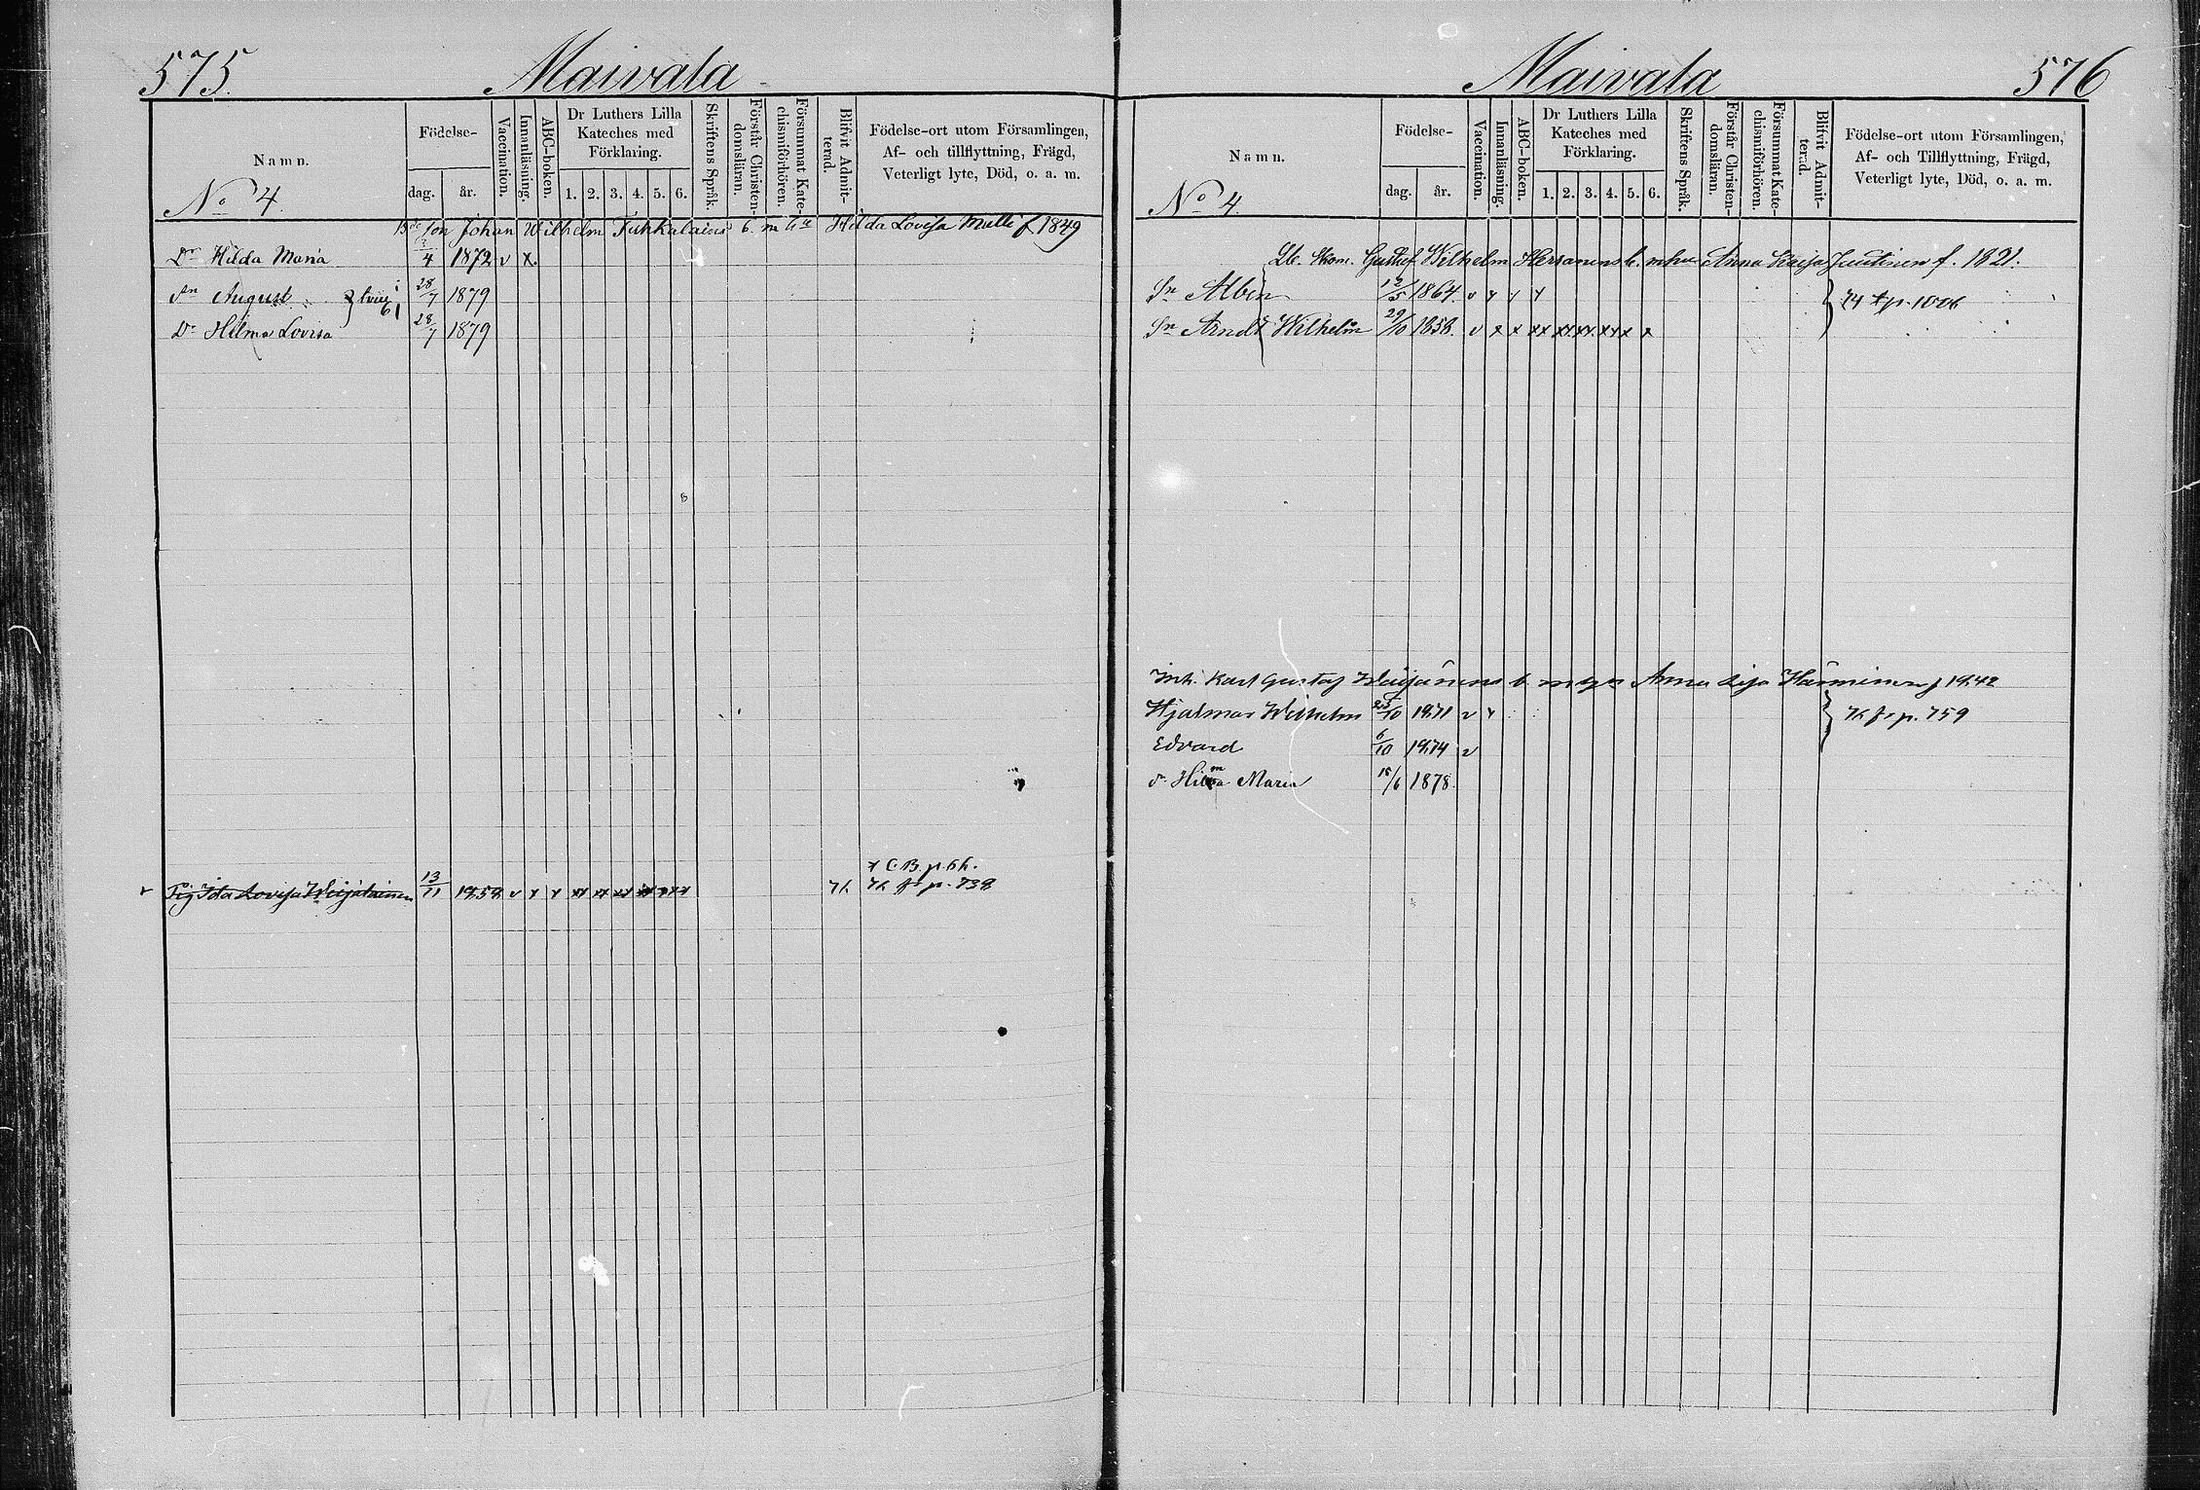 575.
Maivala
Namn.
No 4.
Födelse-
dag.
år.
Vaccination.
Innanläsning.
ABC-boken.
Dr Luthers Lilla
Kateches med
Förklaring.
1. 2. 3. 4. 5. 6.
Skriftens Språk.
Förstår Christen-
domsläran.
Försummat Kate-
chismiförhören.
Blifvit Admit-
terad.
Födelse-ort utom Församlingen,
Af- och tillflyttning, Frägd,
Veterligt lyte, Död, o. a. m.
son Johan Wilhelm Tuhkalainens b. m. h. Hilda Lovisa Mulli f 1849
Dr Hilda Maria 3/4 1872 v x.
Sn August 28/7 1879
Dr Hilma Lovisa 28/7 1879
x C.B. p. 66.
Pig Ida Lovisa Weijalainen 13/11 1858 v x x xx xx xx xx xxx 76 76 fr p. 738
576
Maivala
Namn.
No 4.
Födelse-
dag.
år.
Vaccination.
Innanläsning.
ABC-boken.
Dr Luthers Lilla
Kateches med
Förklaring.
1. 2. 3. 4. 5. 6.
Skriftens Språk.
Förstår Christen-
domsläran.
Försummat Kate-
chismiförhören.
Blifvit Admit-
terad.
Födelse-ort utom Församlingen,
Af- och Tillflyttning, Frägd,
Veterligt lyte, Död, o. a. m.
Skom. Gustaf Wilhelm Hersanens b. m. hu Anna Kaisa Juutinen f. 1821.
Sn Albin 12/5 1864 v x x x
74 fr p. 1006
Sn Arndt Wilhelm 29/10 1858. v x x xx xx xx xx x
Inh. Karl Gustaf Weijänens b. m. Anna Lisa Hänninen f 1842
Hjalmar Wilhelm 25/10 1871 v x
76 fr p. 759
Edvard 6/10 1874 v
dr Hilma Maria 15/6 1878.